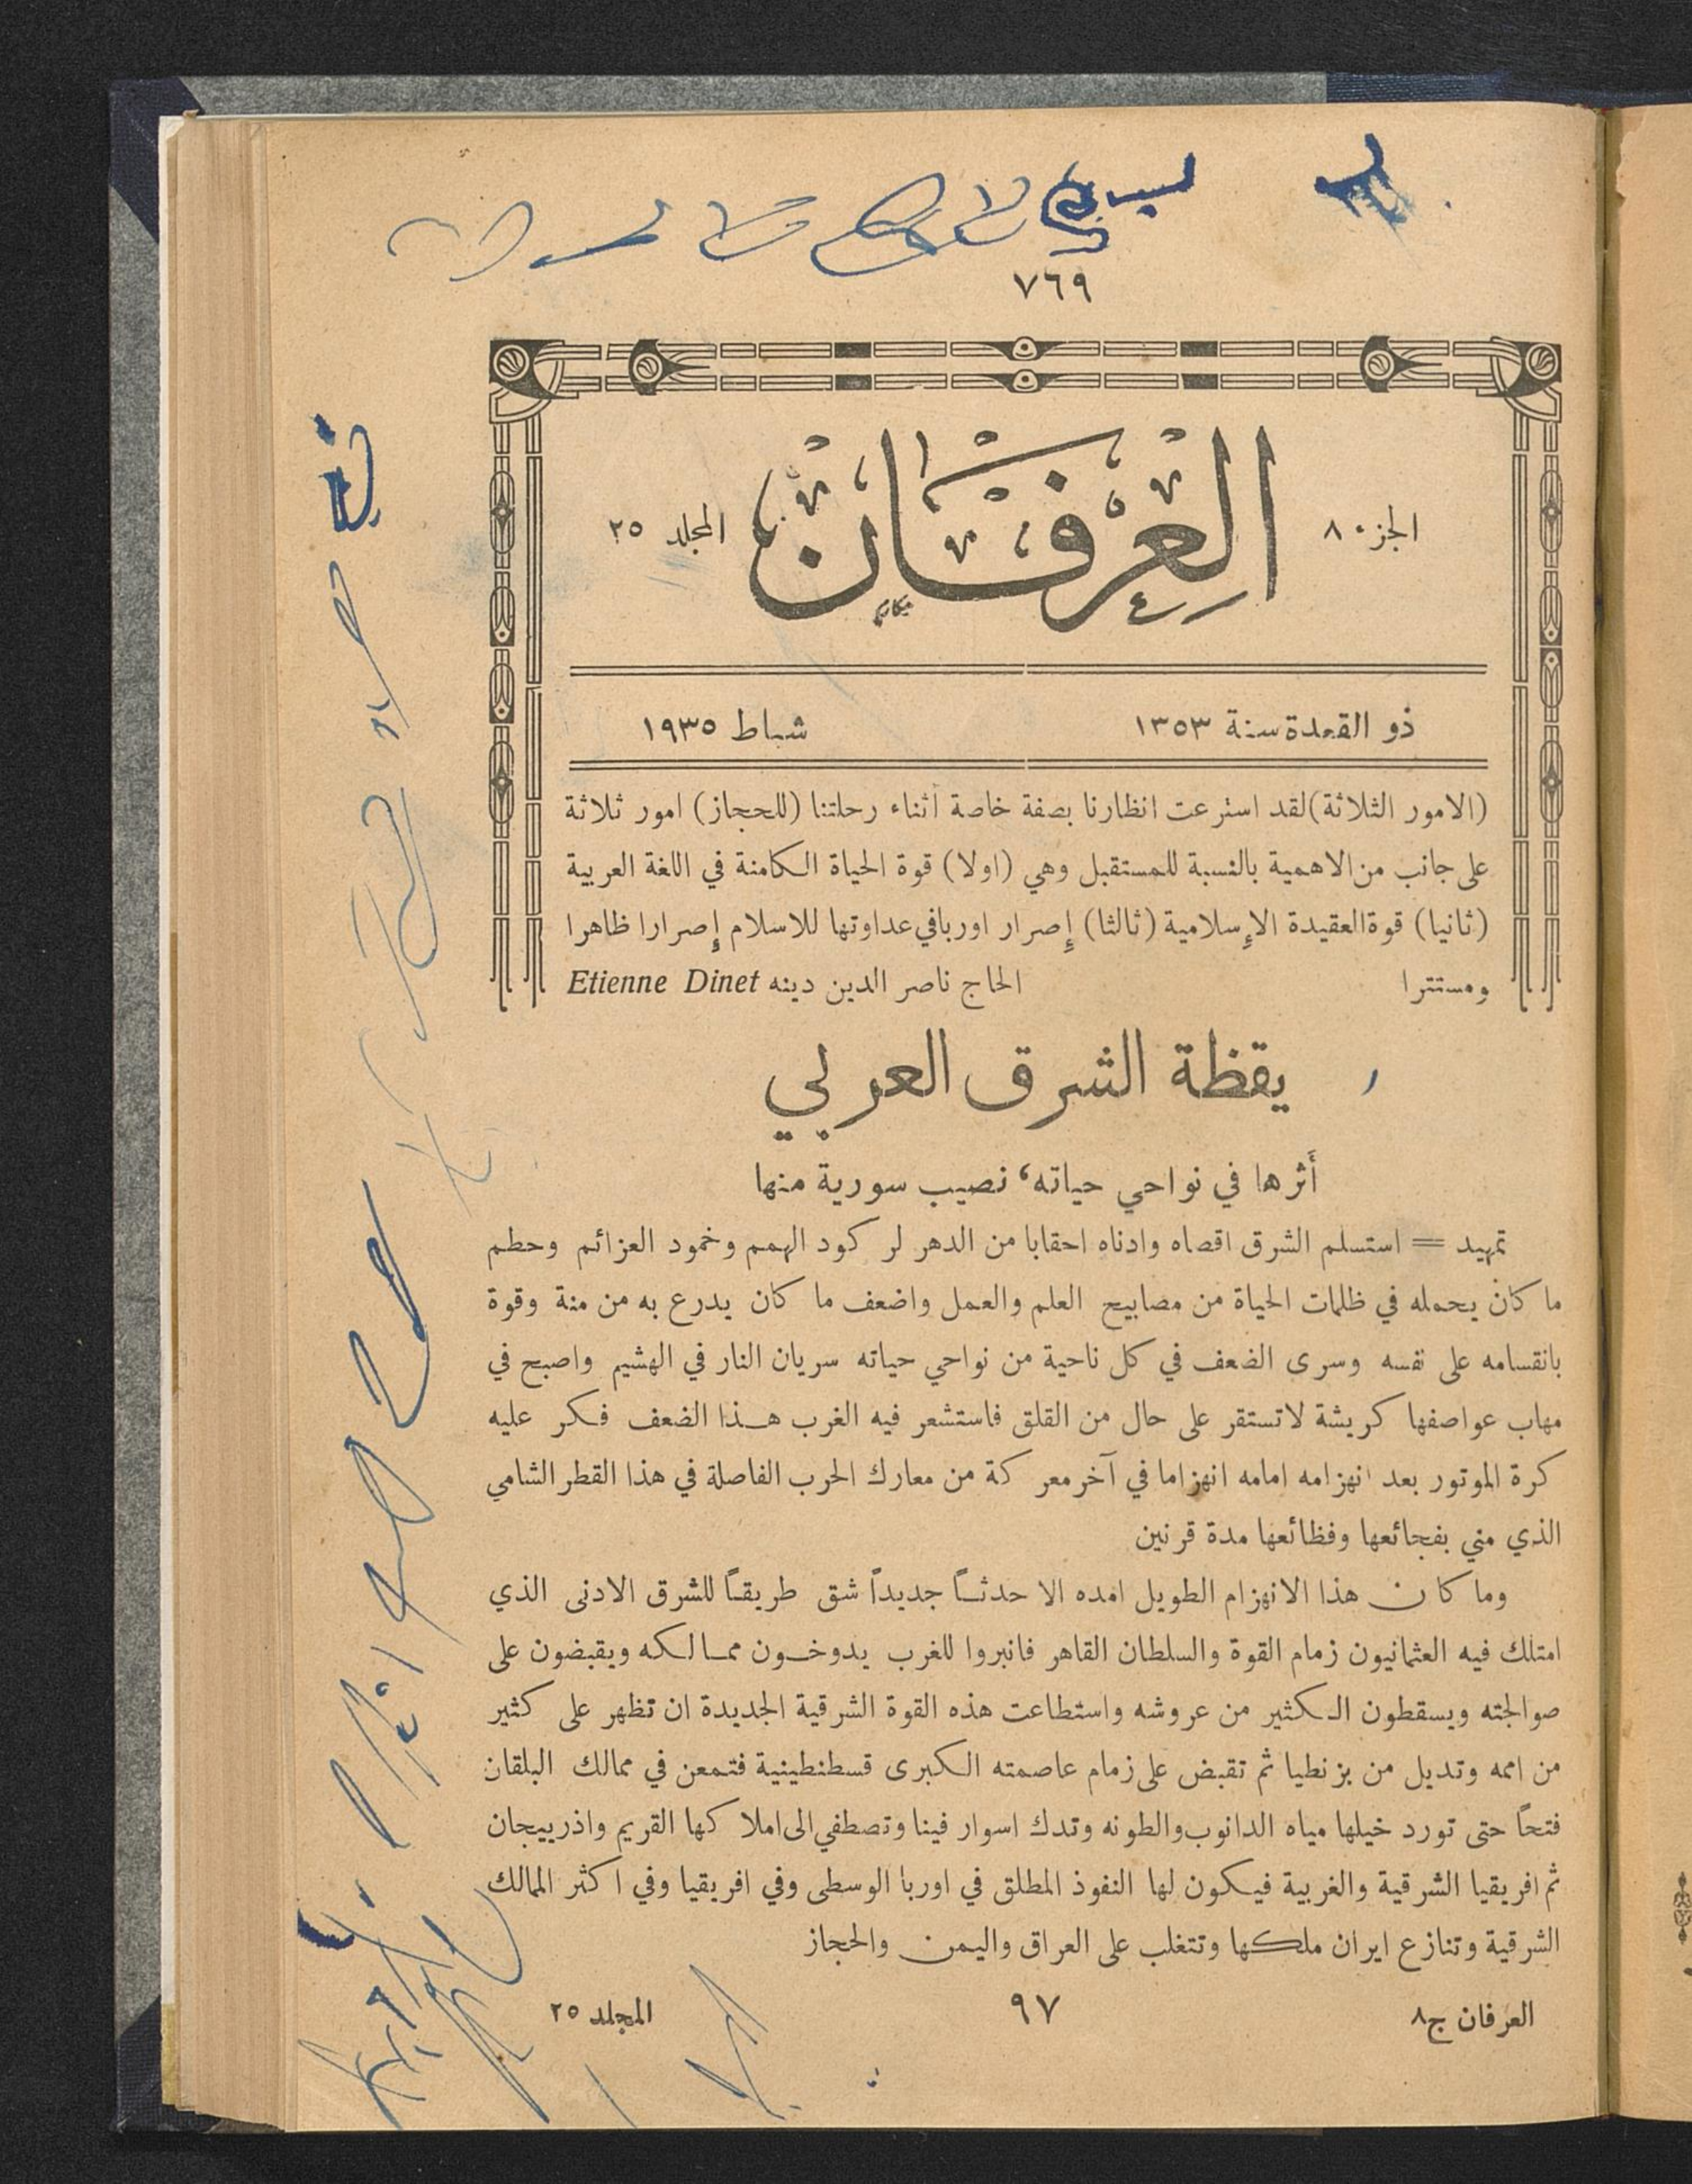 ٧٦٩
الجزء ٨
العرفان
المجلد ٢٥
ذو القعدة سنة ١٣٥٣
شباط ١٩٣٥
(الامور الثلاثة) لقد استرعت انظارنا بصفة خاصة أثناء رحلتنا (للحجاز) امور ثلاثة
على جانب من الاهمية بالنسبة للمستقبل وهي (اولا) قوة الحياة الكامنة في اللغة العربية
(ثانيا) قوة العقيدة الإسلامية (ثالثا) إصرار اوربا في عداوتها للاسلام إصرارا ظاهرا
ومستترا الحاج ناصر الدين دينه Etienne Dinet
يقظة الشرق العربي
أثرها في نواحي حياته، نصيب سورية منها
تمهيد = استسلم الشرق اقصاه وادناه احقابا من الدهر لركود الهمم وخمود العزائم وحطم
ما كان يحمله في ظلمات الحياة من مصابيح العلم والعمل واضعف ما كان يدرع به من منة وقوة
بانقسامه على نفسه وسرى الضعف في كل ناحية من نواحي حياته سريان النار في الهشيم واصبح في
مهاب عواصفها كريشة لا تستقر على حال من القلق فاستشعر فيه الغرب هذا الضعف فكر عليه
كرة الموتور بعد انهزامه امامه انهزاما في آخر معركة من معارك الحرب الفاصلة في هذا القطر الشامي
الذي مني بفجائعها وفظائعها مدة قرنين
وما كان هذا الانهزام الطويل امده الا حدثاً جديداً شق طريقاً للشرق الادنى الذي
امتلك فيه العثمانيون زمام القوة والسلطان القاهر فانبروا للغرب يدوخون ممالكه ويقبضون على
صوالجته ويسقطون الكثير من عروشه واستطاعت هذه القوة الشرقية الجديدة ان تظهر على كثير
من اممه وتديل من بزنطيا ثم تقبض على زمام عاصمته الكبرى قسطنطينية فتمعن في ممالك البلقان
فتحاً حتى تورد خيلها مياه الدانوب والطونه وتدك اسوار فينا وتصطفي الى املاكها القريم واذربيجان
ثم افريقيا الشرقية والغربية فيكون لها النفوذ المطلق في اوربا الوسطى وفي افريقيا وفي اكثر الممالك
الشرقية وتنازع ايران ملكها وتتغلب على العراق واليمن والحجاز
العرفان ج٨
٩٧
المجلد ٢٥